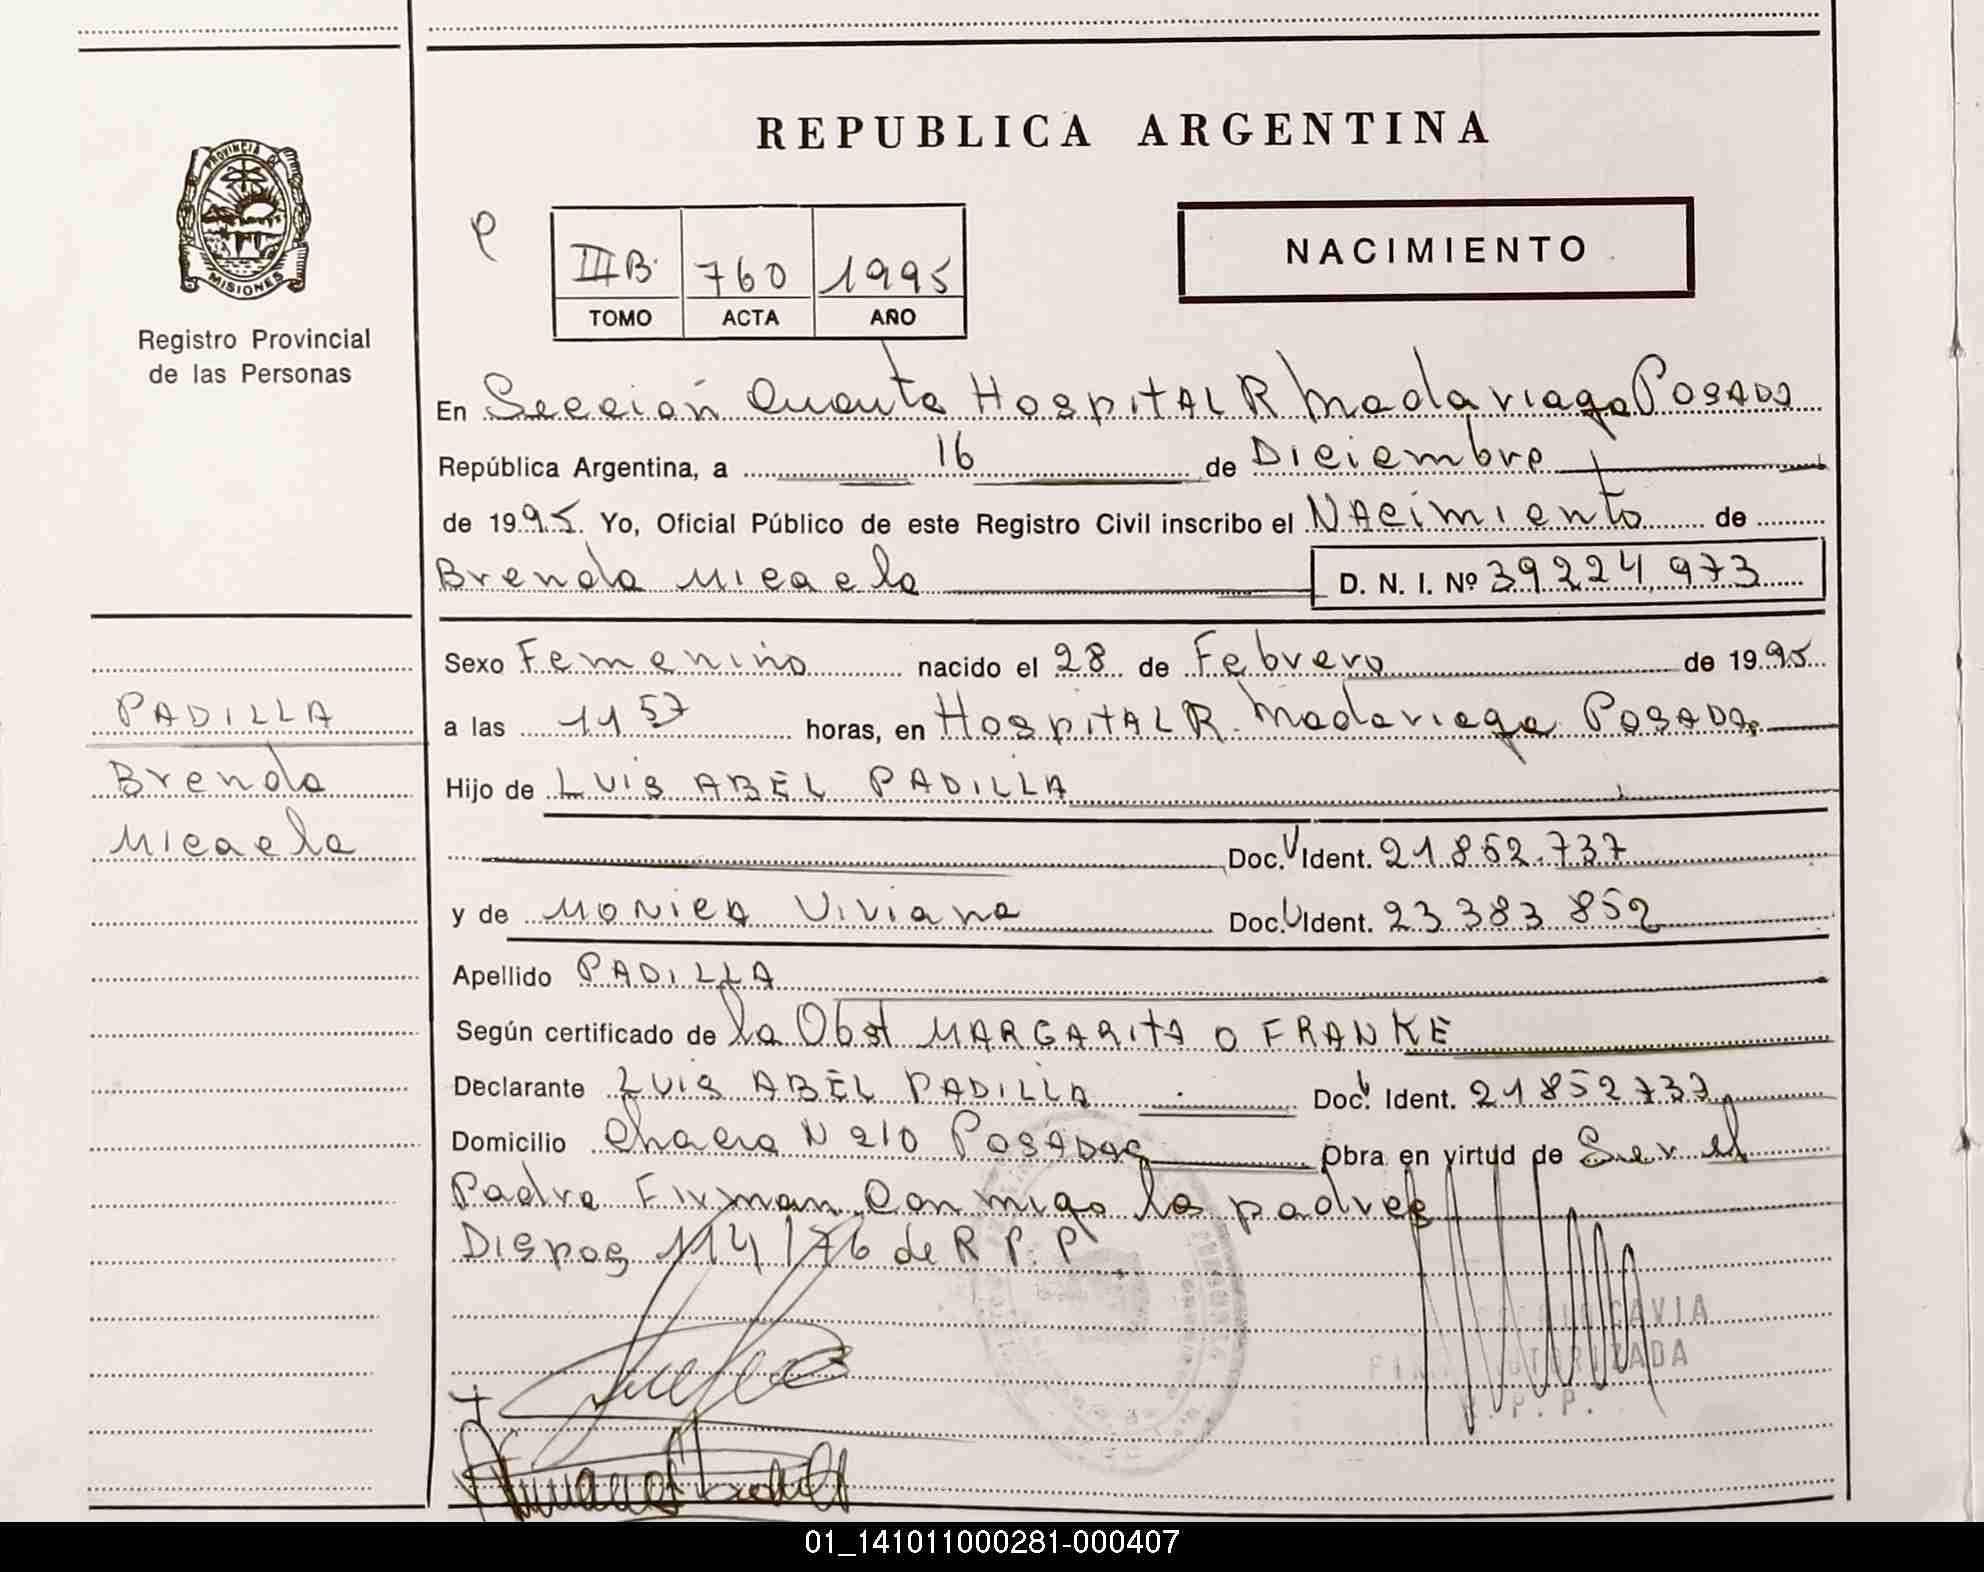 REPUBLICA ARGENTINA
PROVINCIA DE
MISIONES
Registro Provincial
de las Personas
III B. 760 1995
TOMO ACTA AÑO
NACIMIENTO
En Sección Cuarta Hospital R Madariaga Posadas
República Argentina, a 16 de Diciembre
de 1995. Yo, Oficial Público de este Registro Civil inscribo el Nacimiento de
Brenda Micaela D. N. I. Nº 39224973
PADILLA
Brenda
Micaela
Sexo Femenino nacido el 28 de Febrero de 1995
a las 11 57 horas, en Hospital R. Madariaga Posadas
Hijo de LUIS ABEL PADILLA
Doc. Ident. 21852.737
y de MONICA Viviana Doc. Ident. 23 383 852
Apellido PADILLA
Según certificado de la Obst MARGARITA O FRANKE
Declarante LUIS ABEL PADILLA Doc. Ident. 21852737
Domicilio Chacra N 210 Posadas Obra en virtud de Ser el
Padre Firman Conmigo los padres
Dispos 114/76 de R P. P.
GAVIA
FIRMA AUTORIZADA
R. P. P.
01_141011000281-000407